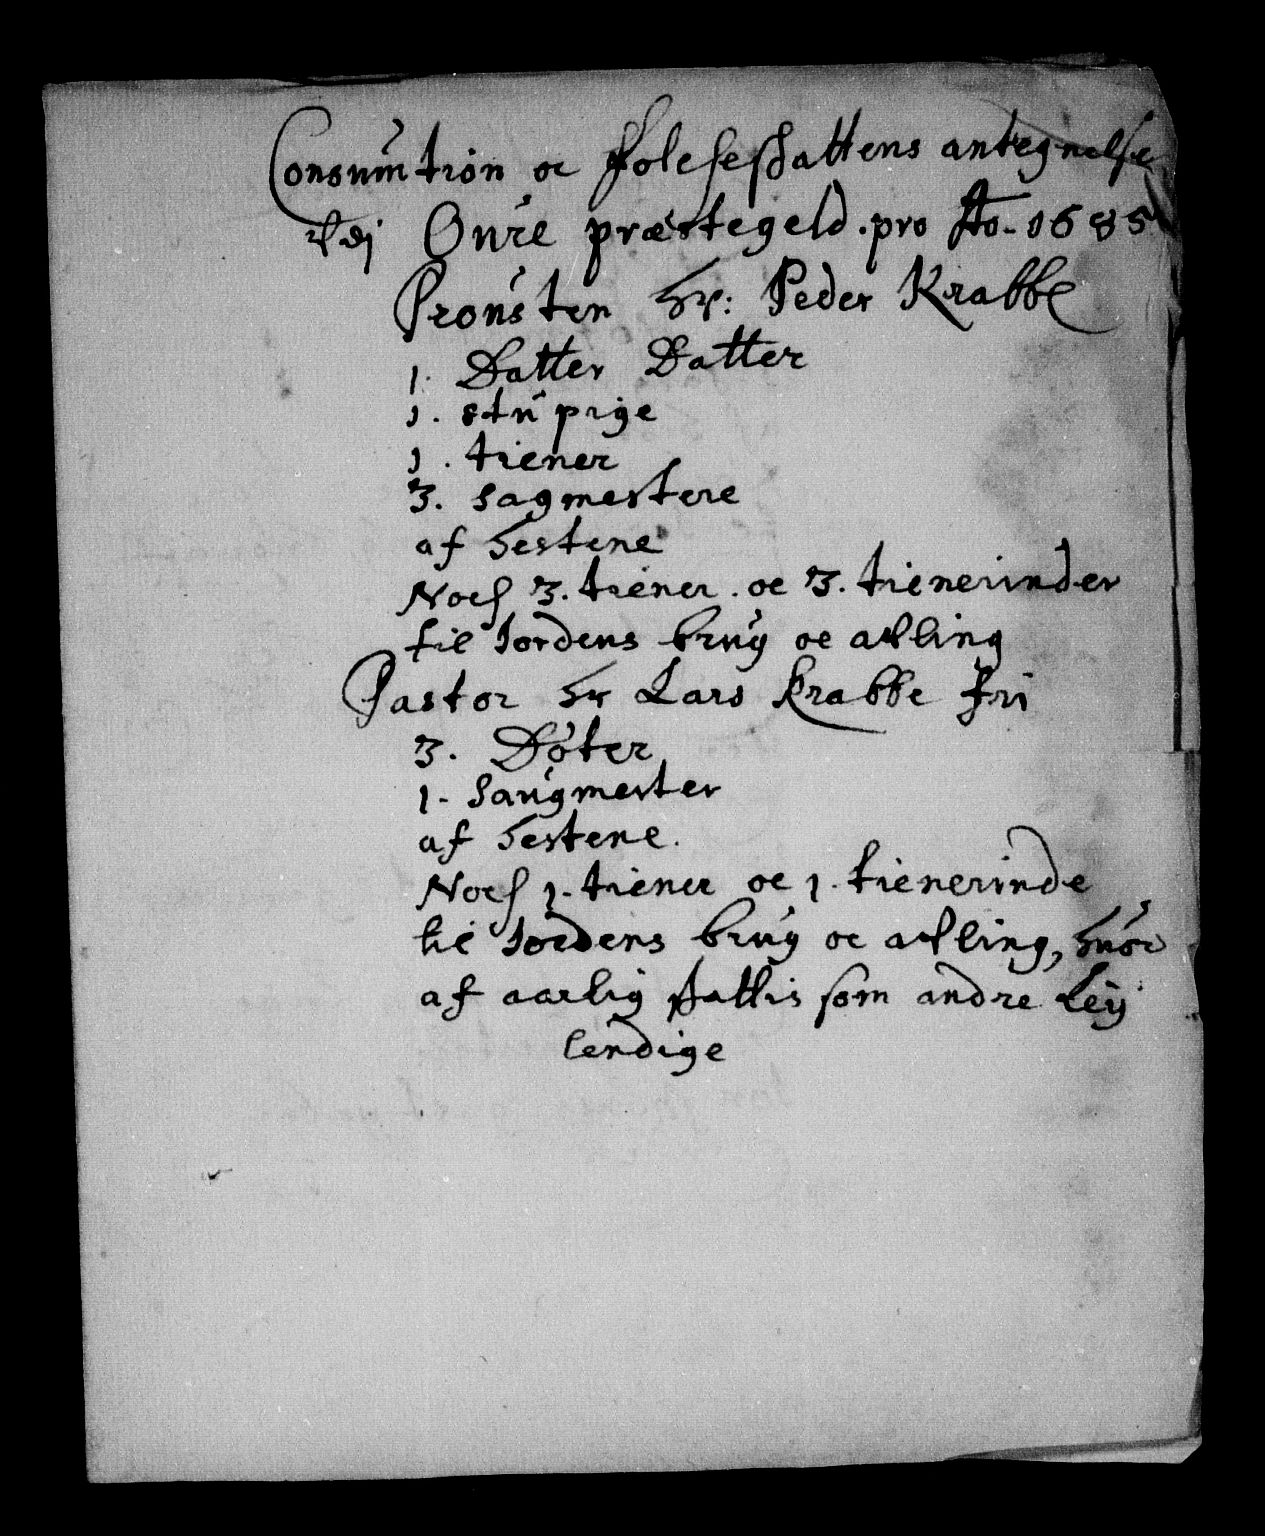 Consumtion oc folcheschattens antegnelse
Onsøe præstegeld. pro Ao. 1685
Pronsten Hr: Peder Krabbe
1. Datter Datter
1. stu pige
1. tiener
3. sagmestere
af hestene
Noch 3. tiener. oc 3. tienerinder
til Jordens brug oc afling
Pastor Hr Lars Krabbe fri
3. Døter
1. Saugmester
af hestene.
Noch 1. tiener oc 1. tienerinde
til Jordens brug oc afling, huor
af aarlig schattis som andre Ley
lendige